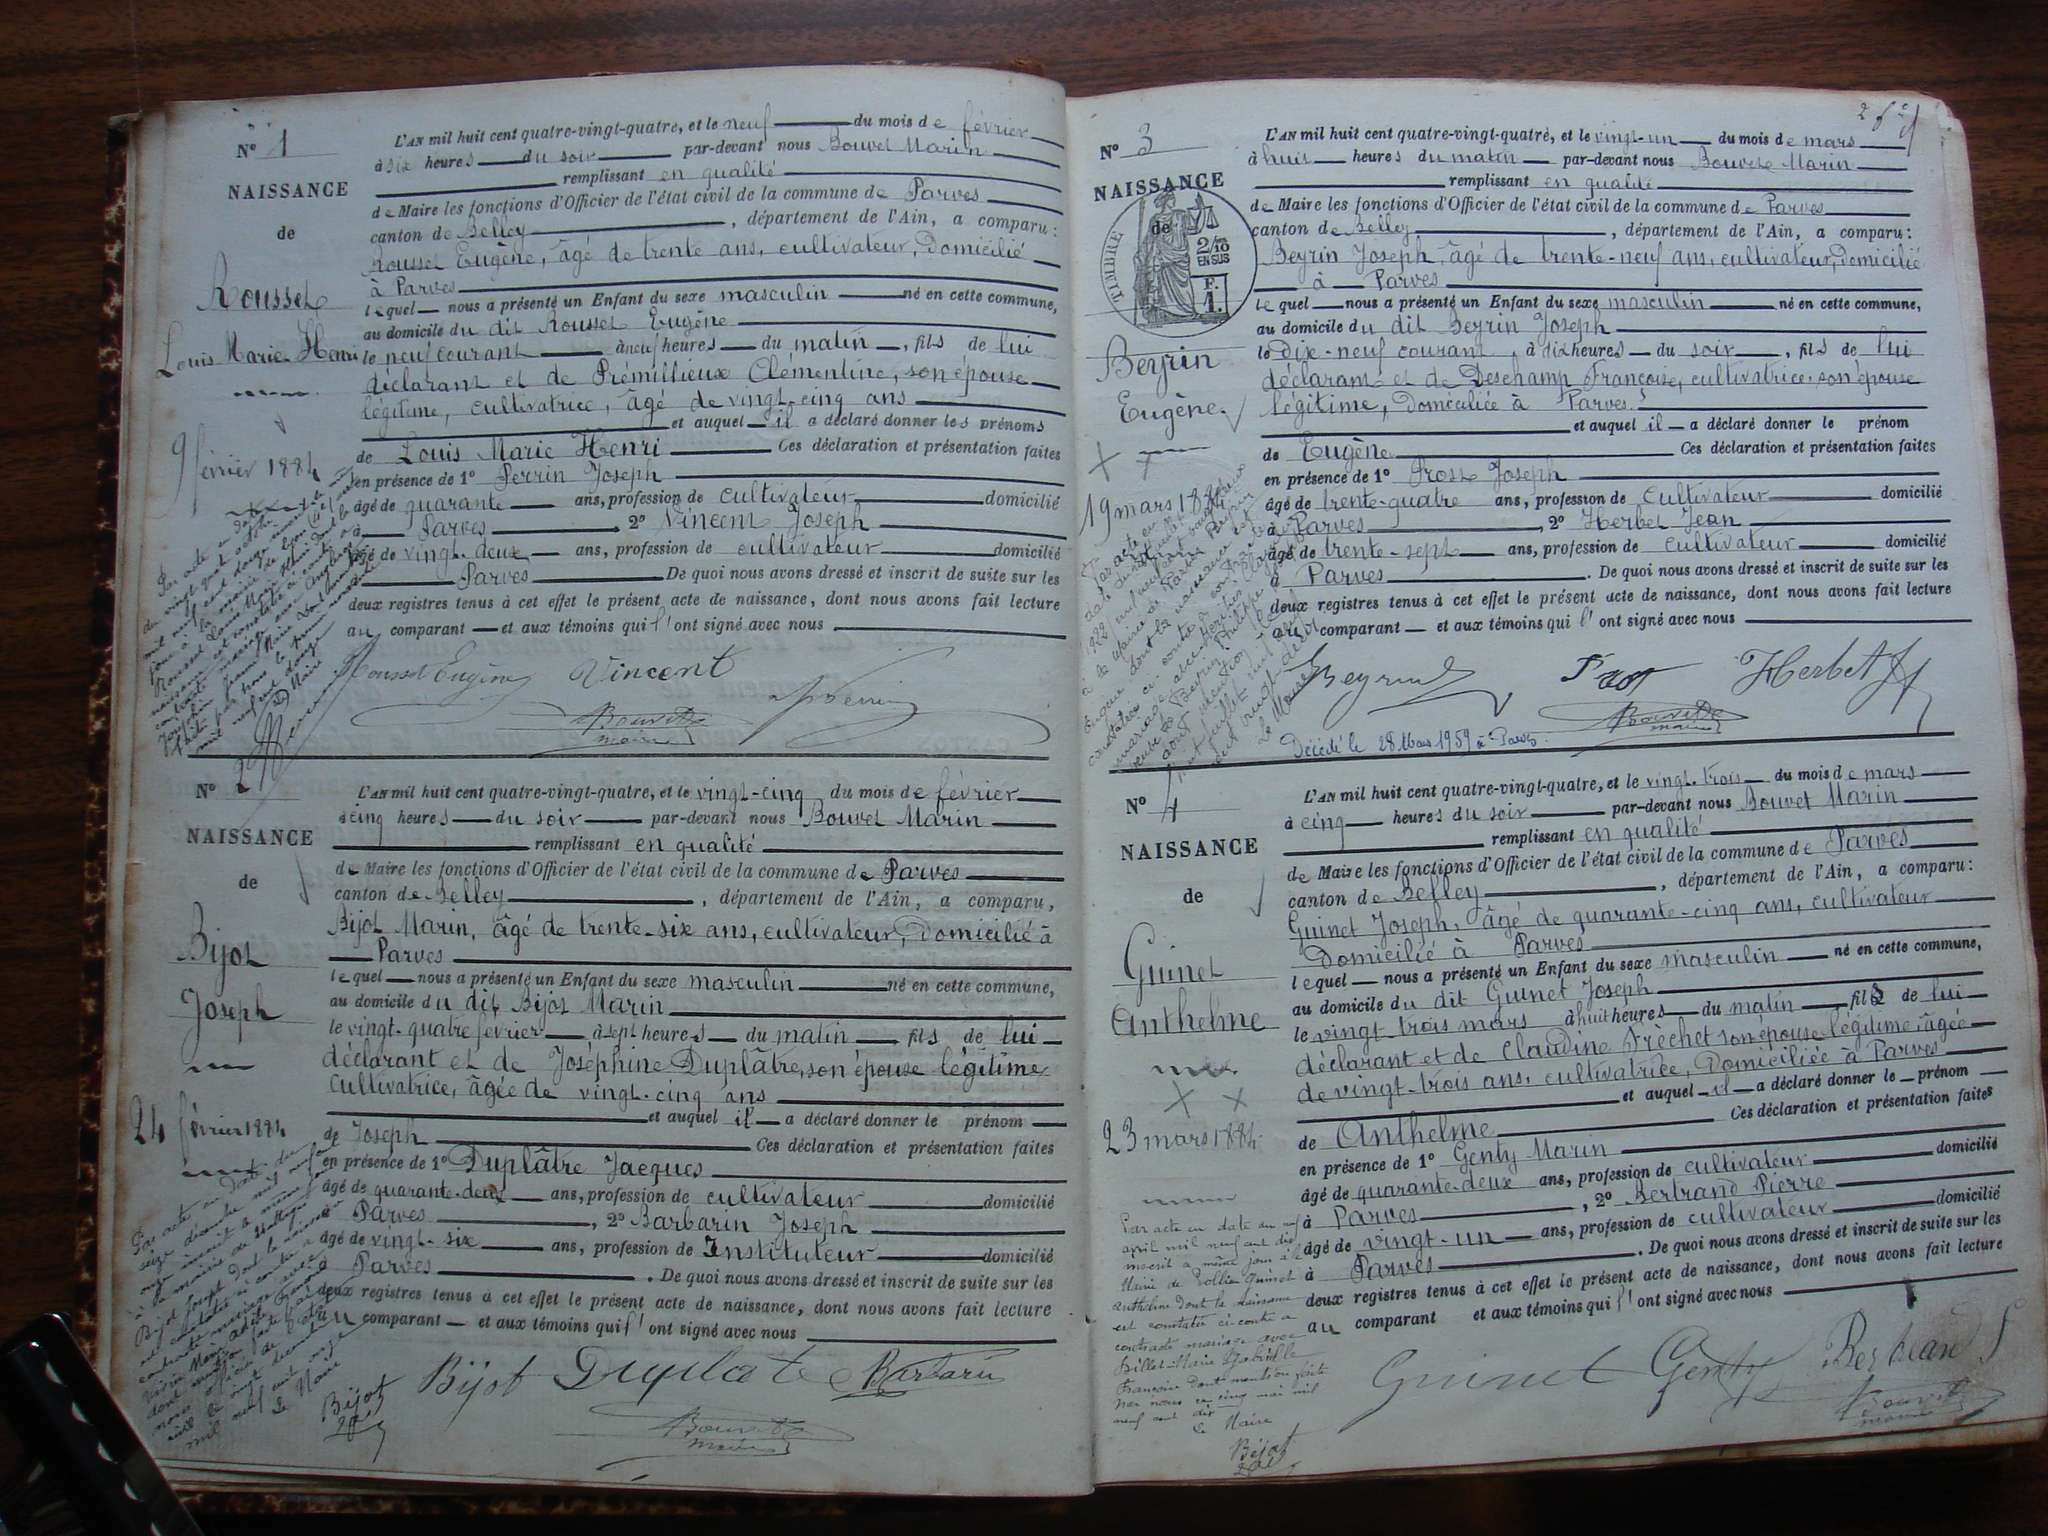 N° 1
NAISSANCE
de
Rousset
Louis Marie Henri
9 février 1884
L'AN mil huit cent quatre-vingt-quatre, et le neuf du mois de février
à six heures du soir par-devant nous Bouvet Marin
remplissant en qualité
de Maire les fonctions d'Officier de l'état civil de la commune de Parves
canton de Belley, département de l'Ain, a comparu :
Rousset Eugène, âgé de trente ans, cultivateur, domicilié
à Parves
lequel nous a présenté un Enfant du sexe masculin né en cette commune,
au domicile du dit Rousset Eugène
le neuf courant à neuf heures du matin, fils de lui
déclarant et de Prémillieux Clémentine, son épouse
légitime, cultivatrice, âgé de vingt-cinq ans
et auquel il a déclaré donner les prénoms
de Louis Marie Henri Ces déclaration et présentation faites
en présence de 1° Perrin Joseph
âgé de quarante ans, profession de cultivateur domicilié
à Parves, 2° Vincent Joseph
âgé de vingt-deux ans, profession de cultivateur domicilié
Parves De quoi nous avons dressé et inscrit de suite sur les
deux registres tenus à cet effet le présent acte de naissance, dont nous avons fait lecture
au comparant et aux témoins qui l'ont signé avec nous
Rousset Eugène Vincent Perrin
Bouvet
maire
N° 2
NAISSANCE
de
Bijot
Joseph
24 février 1884
L'AN mil huit cent quatre-vingt-quatre, et le vingt-cinq du mois de février
à cinq heures du soir par-devant nous Bouvet Marin
remplissant en qualité
de Maire les fonctions d'Officier de l'état civil de la commune de Parves
canton de Belley, département de l'Ain, a comparu,
Bijot Marin, âgé de trente-six ans, cultivateur, domicilié à
Parves
lequel nous a présenté un Enfant du sexe masculin né en cette commune,
au domicile du dit Bijot Marin
le vingt-quatre février à sept heures du matin, fils de lui
déclarant et de Joséphine Duplâtre, son épouse légitime
cultivatrice, âgée de vingt-cinq ans
et auquel il a déclaré donner le prénom
de Joseph Ces déclaration et présentation faites
en présence de 1° Duplâtre Jacques
âgé de quarante-deux ans, profession de cultivateur domicilié
à Parves, 2° Barbarin Joseph
âgé de vingt-six ans, profession de Instituteur domicilié
à Parves. De quoi nous avons dressé et inscrit de suite sur les
deux registres tenus à cet effet le présent acte de naissance, dont nous avons fait lecture
au comparant et aux témoins qui l'ont signé avec nous
Bijot Duplatre Barbarin
Bijot
Bouvet
maire
N° 3
NAISSANCE
de
TIMBRE
2/10
EN SUS
F.
1.
Beyrin
Eugène
19 mars 1884
L'AN mil huit cent quatre-vingt-quatre, et le vingt-un du mois de mars
à huit heures du matin par-devant nous Bouvet Marin
remplissant en qualité
de Maire les fonctions d'Officier de l'état civil de la commune de Parves
canton de Belley, département de l'Ain, a comparu :
Beyrin Joseph, âgé de trente-neuf ans, cultivateur, domicilié
à Parves
lequel nous a présenté un Enfant du sexe masculin né en cette commune,
au domicile du dit Beyrin Joseph
le dix-neuf courant, à dix heures du soir, fils de lui
déclarant et de Deschamp Françoise, cultivatrice, son épouse
légitime, domiciliée à Parves
et auquel il a déclaré donner le prénom
de Eugène Ces déclaration et présentation faites
en présence de 1° Prost Joseph
âgé de trente-quatre ans, profession de cultivateur domicilié
à Parves, 2° Herbet Jean
âgé de trente-sept ans, profession de cultivateur domicilié
à Parves. De quoi nous avons dressé et inscrit de suite sur les
deux registres tenus à cet effet le présent acte de naissance, dont nous avons fait lecture
au comparant et aux témoins qui l'ont signé avec nous
Beyrin Prost Herbet
Bouvet
maire
Décédé le 28 Mars 1959 à Parves
N° 4
NAISSANCE
de
Guinet
Anthelme
23 mars 1884
L'AN mil huit cent quatre-vingt-quatre, et le vingt-trois du mois de mars
à cinq heures du soir par-devant nous Bouvet Marin
remplissant en qualité
de Maire les fonctions d'Officier de l'état civil de la commune de Parves
canton de Belley, département de l'Ain, a comparu :
Guinet Joseph, âgé de quarante-cinq ans, cultivateur
domicilié à Parves
lequel nous a présenté un Enfant du sexe masculin né en cette commune,
au domicile du dit Guinet Joseph
le vingt-trois mars à huit heures du matin, fils de lui
déclarant et de Claudine Fréchet son épouse légitime âgée
de vingt-trois ans, cultivatrice, domiciliée à Parves
et auquel il a déclaré donner le prénom
de Anthelme Ces déclaration et présentation faites
en présence de 1° Genty Marin
âgé de quarante-deux ans, profession de cultivateur domicilié
à Parves, 2° Bertrand Pierre
âgé de vingt-un ans, profession de cultivateur domicilié
à Parves. De quoi nous avons dressé et inscrit de suite sur les
deux registres tenus à cet effet le présent acte de naissance, dont nous avons fait lecture
au comparant et aux témoins qui l'ont signé avec nous
Par acte en date du neuf
avril mil neuf cent dix
inscrit le même jour à la
Mairie de Guinet
Anthelme dont la naissance
est constatée ci-contre a
contracté mariage avec
Billet Marie
Françoise dont mention faite
par nous ce cinq mai mil
neuf cent dix
Le Maire
Bijot
Guinet Genty Bertrand
Bouvet
maire